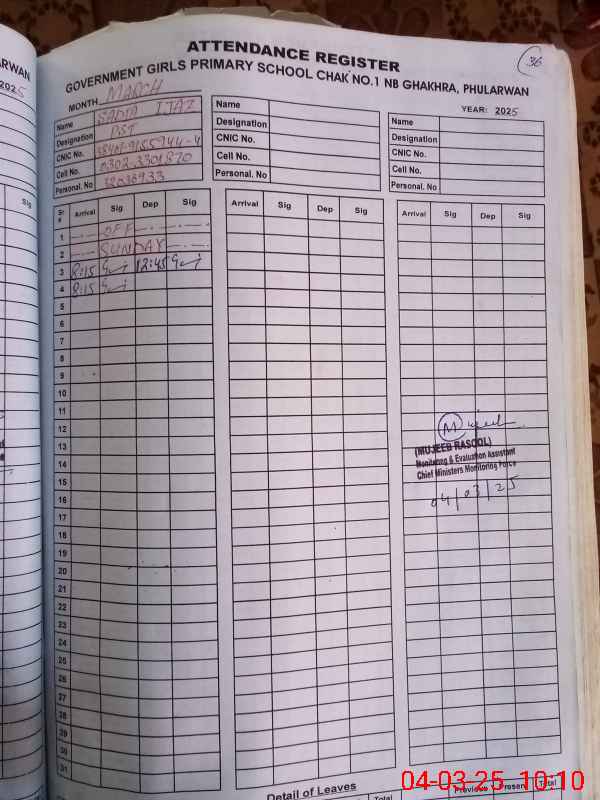 ARWAN
2025
Sig
36
ATTENDANCE REGISTER
GOVERNMENT GIRLS PRIMARY SCHOOL CHAK NO.1 NB GHAKHRA, PHULARWAN
MONTH MARCH
YEAR: 2025
Name SADIA IJAZ
Designation PST
CNIC No.
Cell No. 0302-3301870
Personal. No
Name
Designation
CNIC No.
Cell No.
Personal. No
Name
Designation
CNIC No.
Cell No.
Personal. No
Sr # Arrival Sig Dep Sig Arrival Sig Dep Sig Arrival Sig Dep Sig
1 OFF
2 SUNDAY
3 8:15 12:45
4 8:15
5
6
7
8
9
10
11
12
13
14
15
16
17
18
19
20
21
22
23
24
25
26
27
28
29
30
31
(MUJEEB RASOOL)
Monitoring & Evaluation Assistant
Chief Ministers Monitoring Force
04/03/25
Detail of Leaves
Previous Present Total
Total
04-03-25 10:10